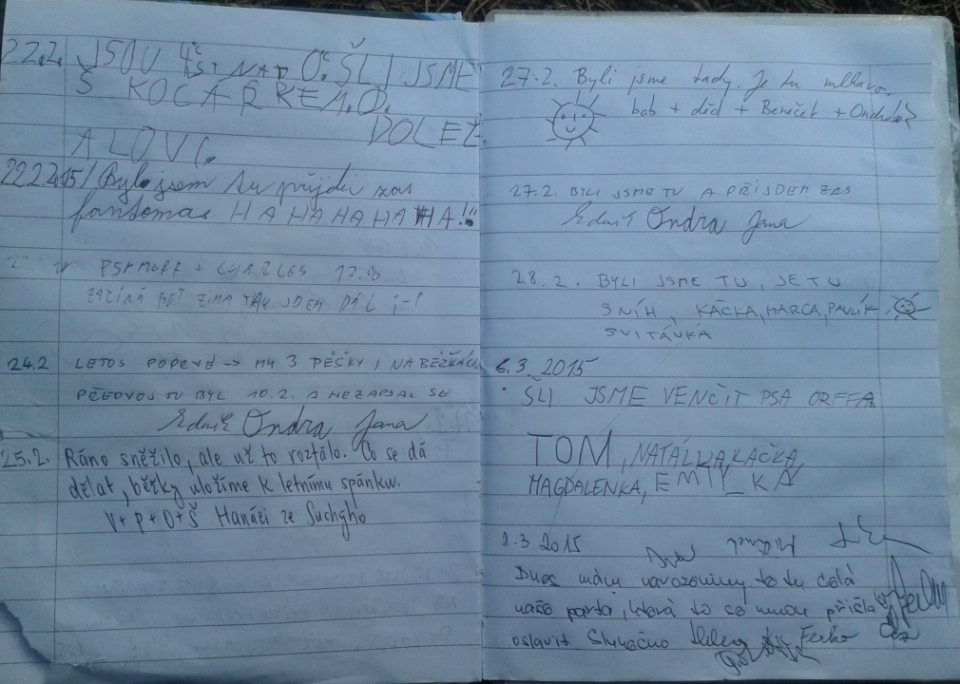 22.2. JSOU 4°C NAD 0. ŠLI JSME
S KOČÁRKEM. O.
DOLEŽ
ALOVI.
22.2.15/ Byla jsem tu přijdu zas
fantomas HA HA HA HA HA!!
17.00
ZAČÍNÁ BÝT ZIMA TAK JDEM DÁL ;-)
24.2 LETOS POPRVÉ → MY 3 PĚŠKY I NA BĚŽKÁCH
PŘEDVOJ TU BYL 10.2. A NEZAPSAL SE
Ondra Jana
25.2. Ráno sněžilo, ale už to roztálo. Co se dá
dělat, běžky uložíme k letnímu spánku.
V+P+O+Š Hanáci ze Suchýho
27.2. Byli jsme tady. Je tu mlhavo.
bob + děd + Beneček +
27.2. BYLI JSME TU A PŘIJDEM ZAS
Ondra Jana
28.2. BYLI JSME TU, JE TU
SNÍH, KAČKA, MARCA, PAVLÍK
SVITÁVKA
6.3.2015
ŠLI JSME VENČIT PSA ORFFA
TOM, NATÁLKA, KAČKA,
MAGDALENKA, EMILKA
2.3.2015
Dnes mám narozeniny to tu celá
naše parta, která to se mnou přišla
oslavit